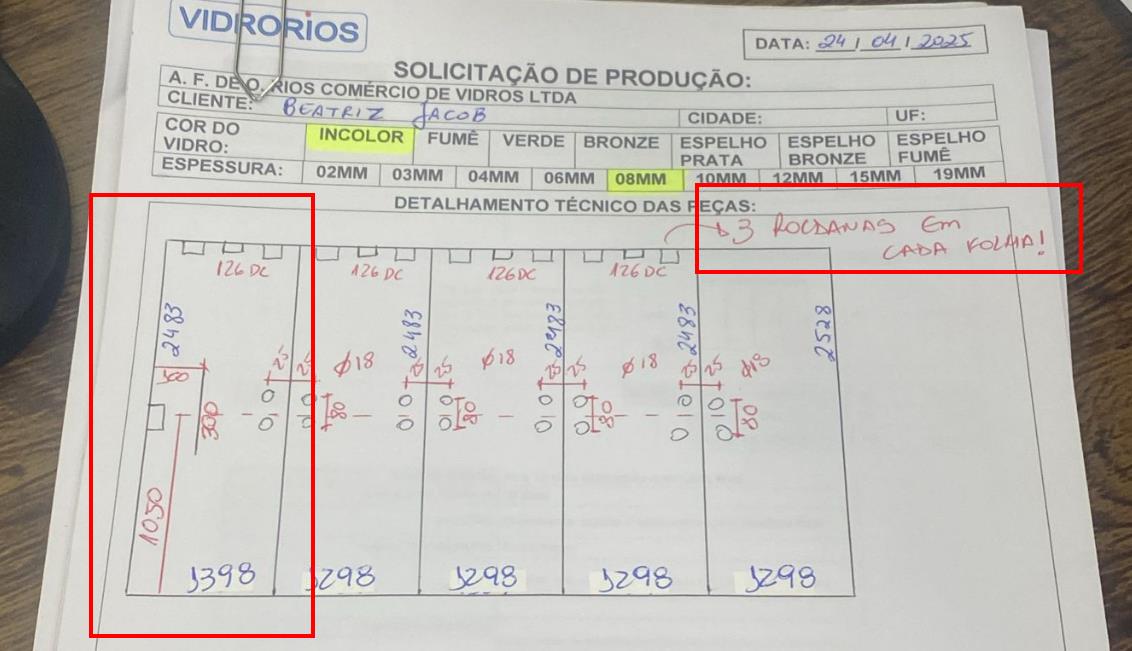 VIDRORIOS
DATA: 24 / 04 / 2025
SOLICITAÇÃO DE PRODUÇÃO:
A. F. DE O. RIOS COMÉRCIO DE VIDROS LTDA
CLIENTE: BEATRIZ JACOB CIDADE: UF:
COR DO VIDRO: INCOLOR FUMÊ VERDE BRONZE ESPELHO PRATA ESPELHO BRONZE ESPELHO FUMÊ
ESPESSURA: 02MM 03MM 04MM 06MM 08MM 10MM 12MM 15MM 19MM
DETALHAMENTO TÉCNICO DAS PEÇAS:
3 ROLDANAS EM
CADA FOLHA!
126 DC 126 DC 126 DC 126 DC
2483 2483 2483 2483 2528
25 25 Ø18 25 25 Ø18 25 25 Ø18 25 25 Ø18
300 80 80 80 80
1050
1398 1298 1298 1298 1298